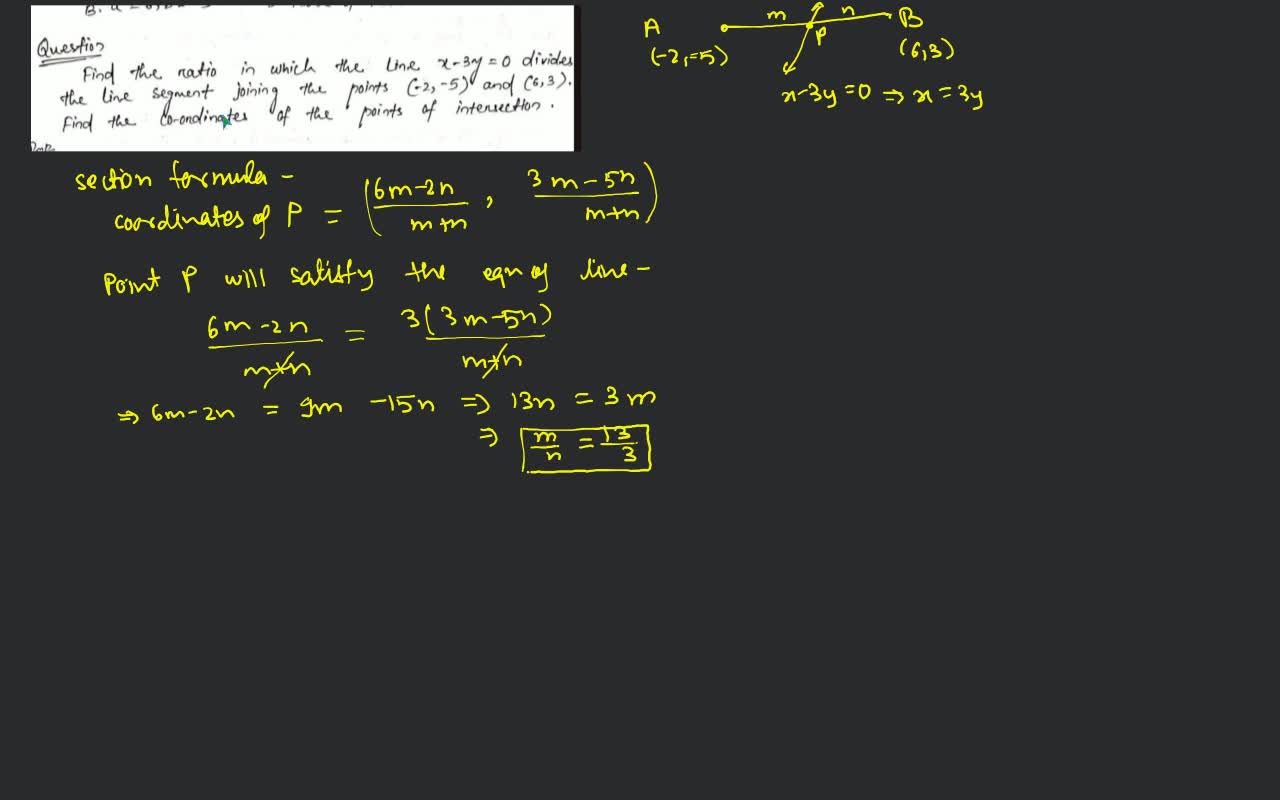 Question
Find the ratio in which the line x-3y=0 divides
the line segment joining the points (-2,-5) and (6,3).
Find the co-ordinates of the points of intersection.
A m n B
P
(-2,-5) (6,3)
x-3y=0 ⇒ x=3y
section formula -
coordinates of P = (6m-2n/m+n, 3m-5n/m+n)
Point P will satisfy the eqn of line -
6m-2n/m+n = 3(3m-5n)/m+n
⇒ 6m-2n = 9m -15n ⇒ 13n = 3m
⇒ m/n = 13/3